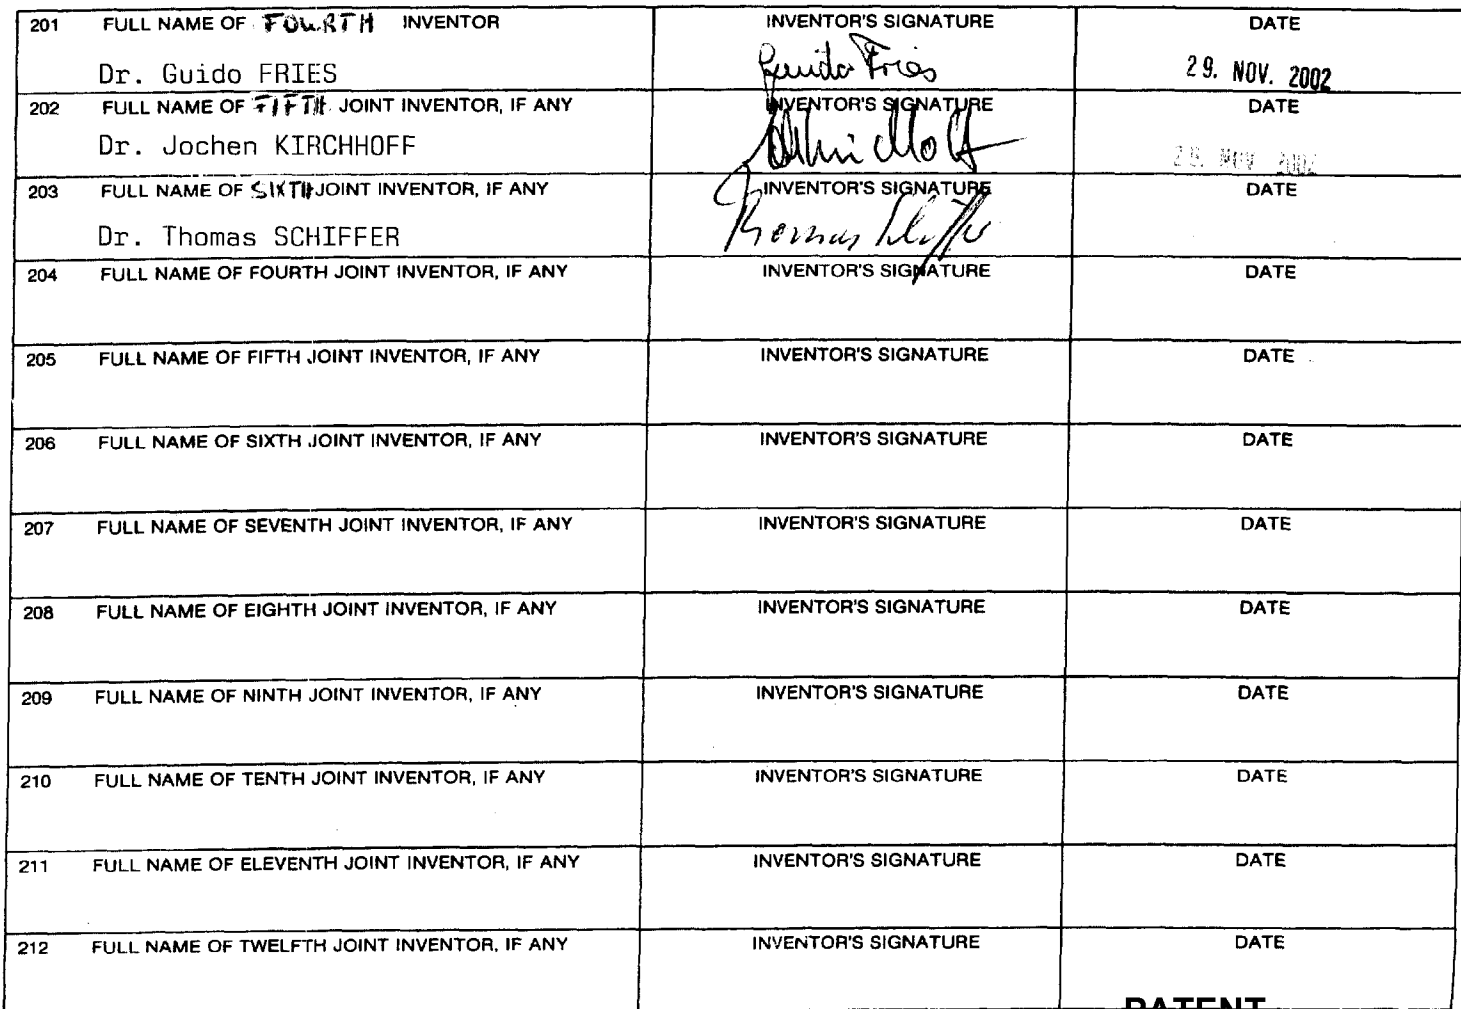 201 FULL NAME OF FOURTH INVENTOR INVENTOR'S SIGNATURE DATE
Dr. Guido FRIES Guido Fries 29. NOV. 2002
202 FULL NAME OF FIFTH JOINT INVENTOR, IF ANY INVENTOR'S SIGNATURE DATE
Dr. Jochen KIRCHHOFF NOV 2002
203 FULL NAME OF SIXTH JOINT INVENTOR, IF ANY INVENTOR'S SIGNATURE DATE
Dr. Thomas SCHIFFER Thomas Schiffer
204 FULL NAME OF FOURTH JOINT INVENTOR, IF ANY INVENTOR'S SIGNATURE DATE
205 FULL NAME OF FIFTH JOINT INVENTOR, IF ANY INVENTOR'S SIGNATURE DATE
206 FULL NAME OF SIXTH JOINT INVENTOR, IF ANY INVENTOR'S SIGNATURE DATE
207 FULL NAME OF SEVENTH JOINT INVENTOR, IF ANY INVENTOR'S SIGNATURE DATE
208 FULL NAME OF EIGHTH JOINT INVENTOR, IF ANY INVENTOR'S SIGNATURE DATE
209 FULL NAME OF NINTH JOINT INVENTOR, IF ANY INVENTOR'S SIGNATURE DATE
210 FULL NAME OF TENTH JOINT INVENTOR, IF ANY INVENTOR'S SIGNATURE DATE
211 FULL NAME OF ELEVENTH JOINT INVENTOR, IF ANY INVENTOR'S SIGNATURE DATE
212 FULL NAME OF TWELFTH JOINT INVENTOR, IF ANY INVENTOR'S SIGNATURE DATE
PATENT